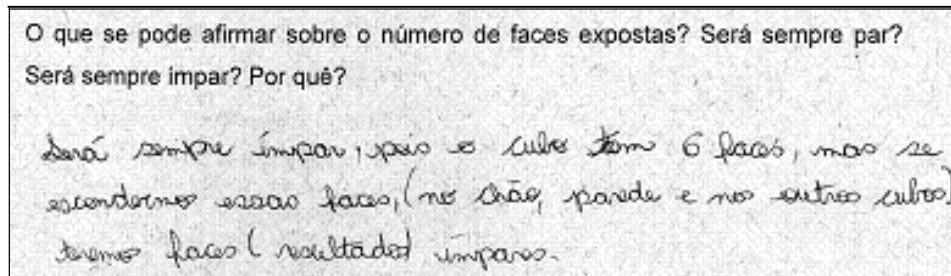 O que se pode afirmar sobre o número de faces expostas? Será sempre par?
Será sempre impar? Por quê?
Será sempre ímpar, pois o cubo tem 6 faces, mas se
escondermos essas faces, (no chão, parede e nos outros cubos)
teremos faces (resultados) ímpares.